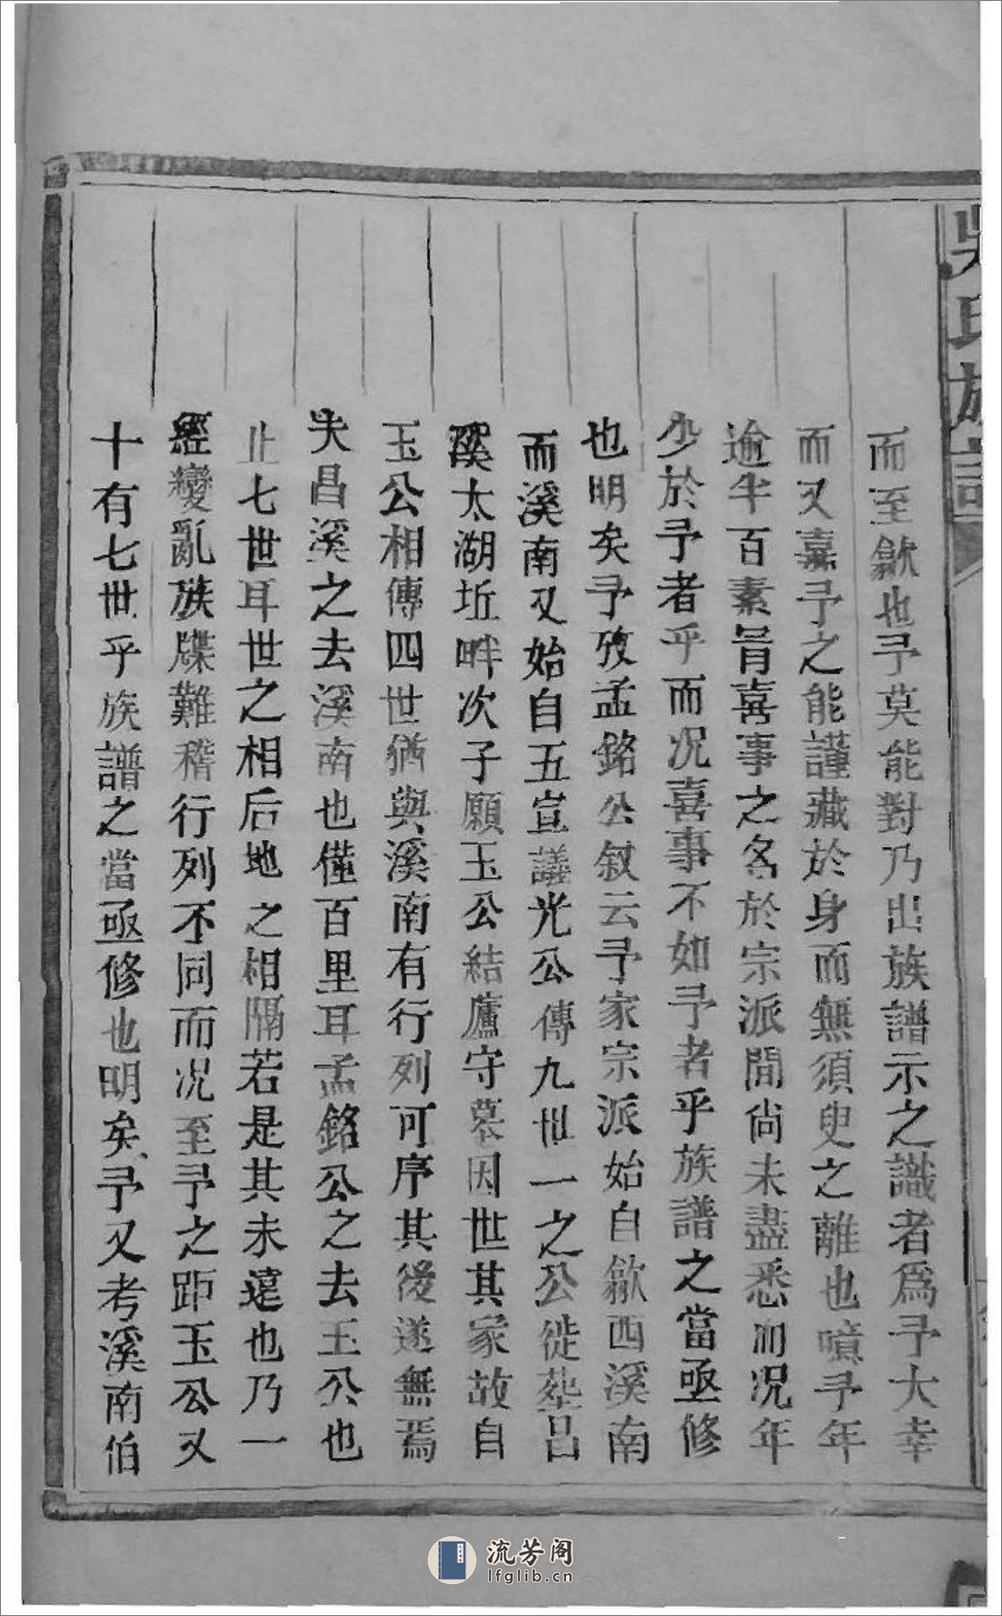 吳氏族譜
而至歙也予莫能對乃出族譜示之識者爲予大幸
而又嘉予之能謹藏於身而無須臾之離也噫予年
逾半百素胥喜事之名於宗派間尚未盡悉而况年
少於予者乎而况喜事不如予者乎族譜之當亟修
也明矣予攷孟銘公叙云予家宗派始自歙西溪南
而溪南又始自五宣議光公傳九世一之公徙塟昌
溪太湖坵畔次子願玉公結廬守墓因世其家故自
玉公相傳四世猶與溪南有行列可序其後遂無焉
夫昌溪之去溪南也僅百里耳孟銘公之去玉公也
止七世耳世之相后地之相隔若是其未遠也乃一
經變亂族牒難稽行列不同而况至予之距玉公又
十有七世乎族譜之當亟修也明矣予又考溪南伯
流芳阁
lfglib.cn